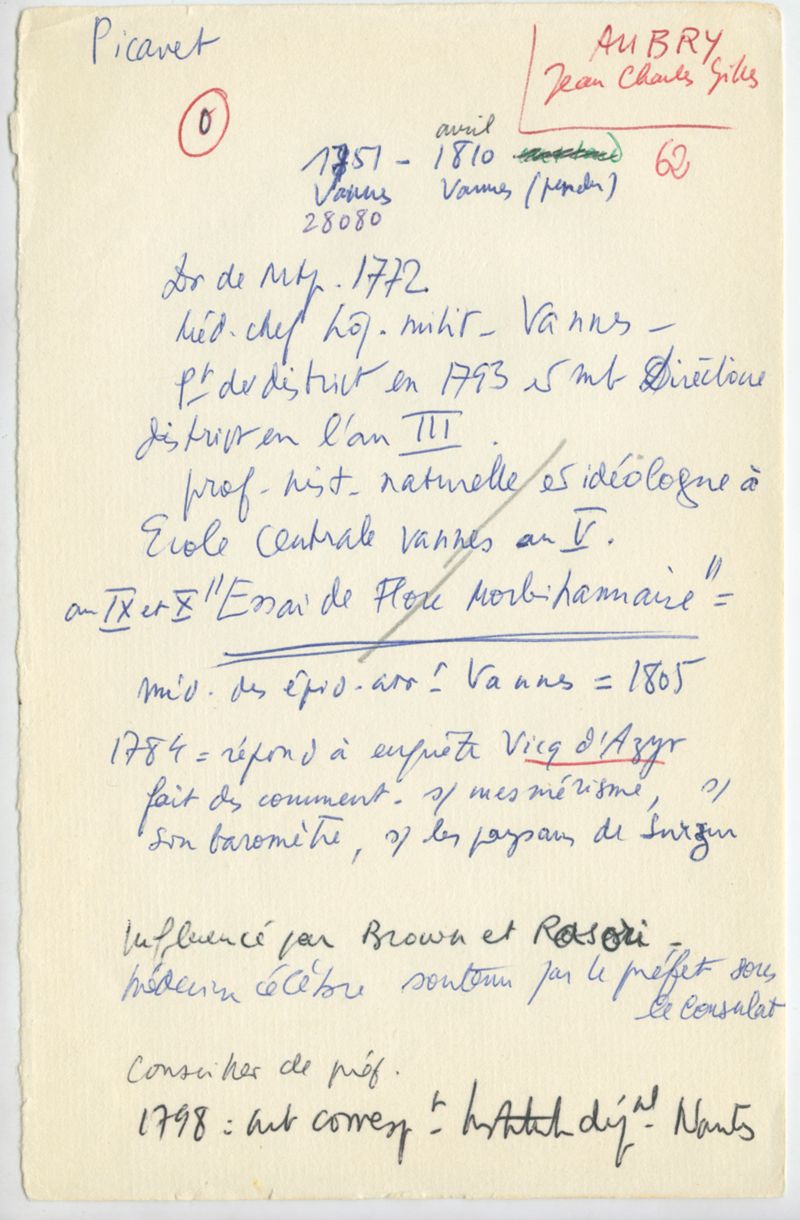 Picavet
AUBRY
Jean Charles Gilles
0
avril
1751 - 1810
62
Vannes Vannes (pendu)
28080
Dr de Mtp. 1772
Méd. chef hôp. milit - Vannes -
Pt de district en 1793 et mb Directoire
district en l'an III.
prof - hist - naturelle et idéologue à
Ecole Centrale Vannes an V.
an IX et X "Essai de Flore Morbihannaise" =
méd. des épid. arrt Vannes = 1805
1784 = répond à enquête Vicq d'Azyr
fait des comment. s/ mesmérisme, s/
son baromètre, s/ les paysans de Surzur
Influencé par Brown et Rasori -
Médecin célèbre soutenu par le préfet sous
le consulat
Conseiller de préf.
1798 : mb correspt Institut dépal Nantes